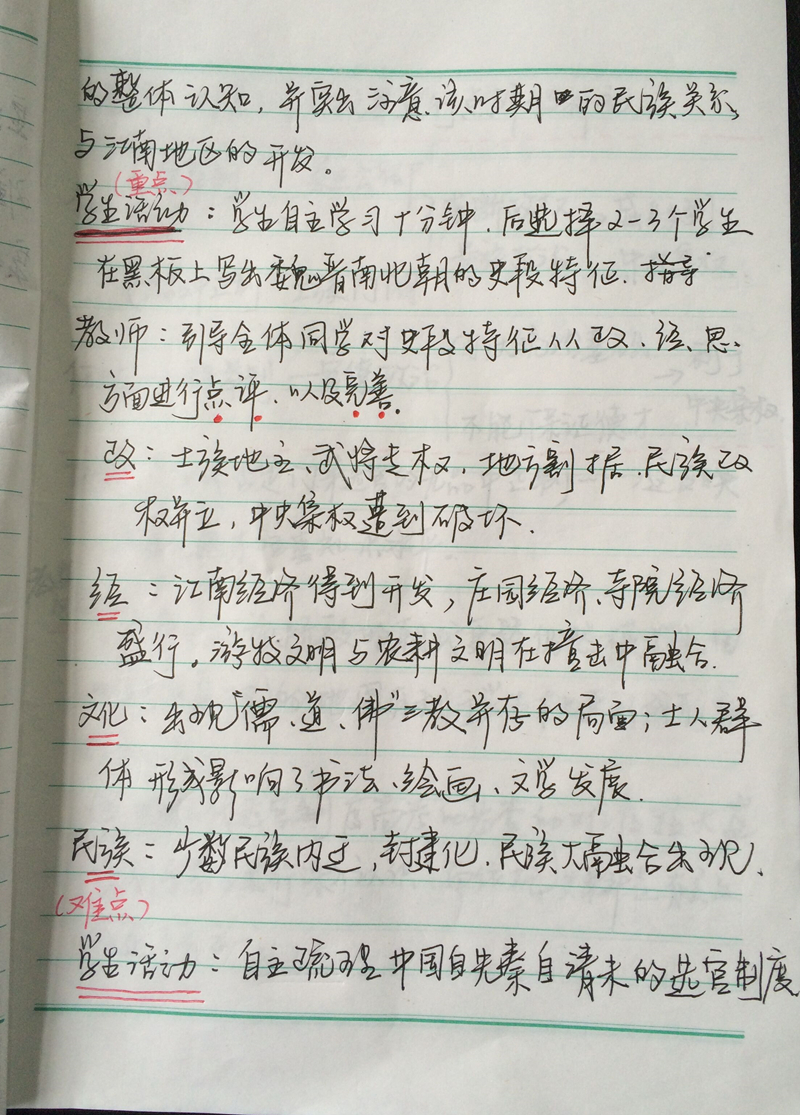 的整体认知，并突出注意该时期的民族关系
与江南地区的开发。
（重点）
学生活动：学生自主学习十分钟，后选择2-3个学生
在黑板上写出魏晋南北朝的史段特征．
教师：引导全体同学对史段特征从政、经、思
方面进行点评，以及完善。
政：士族地主、武将专权，地方割据，民族政
权并立，中央集权遭到破坏．
经：江南经济得到开发，庄园经济、寺院经济
盛行。游牧文明与农耕文明在撞击中融合．
文化：出现“儒、道、佛”三教并存的局面；士人群
体形成影响了书法、绘画、文学发展．
民族：少数民族内迁，封建化．民族大融合出现．
（难点）
学生活动：自主梳理中国自先秦自清末的选官制度